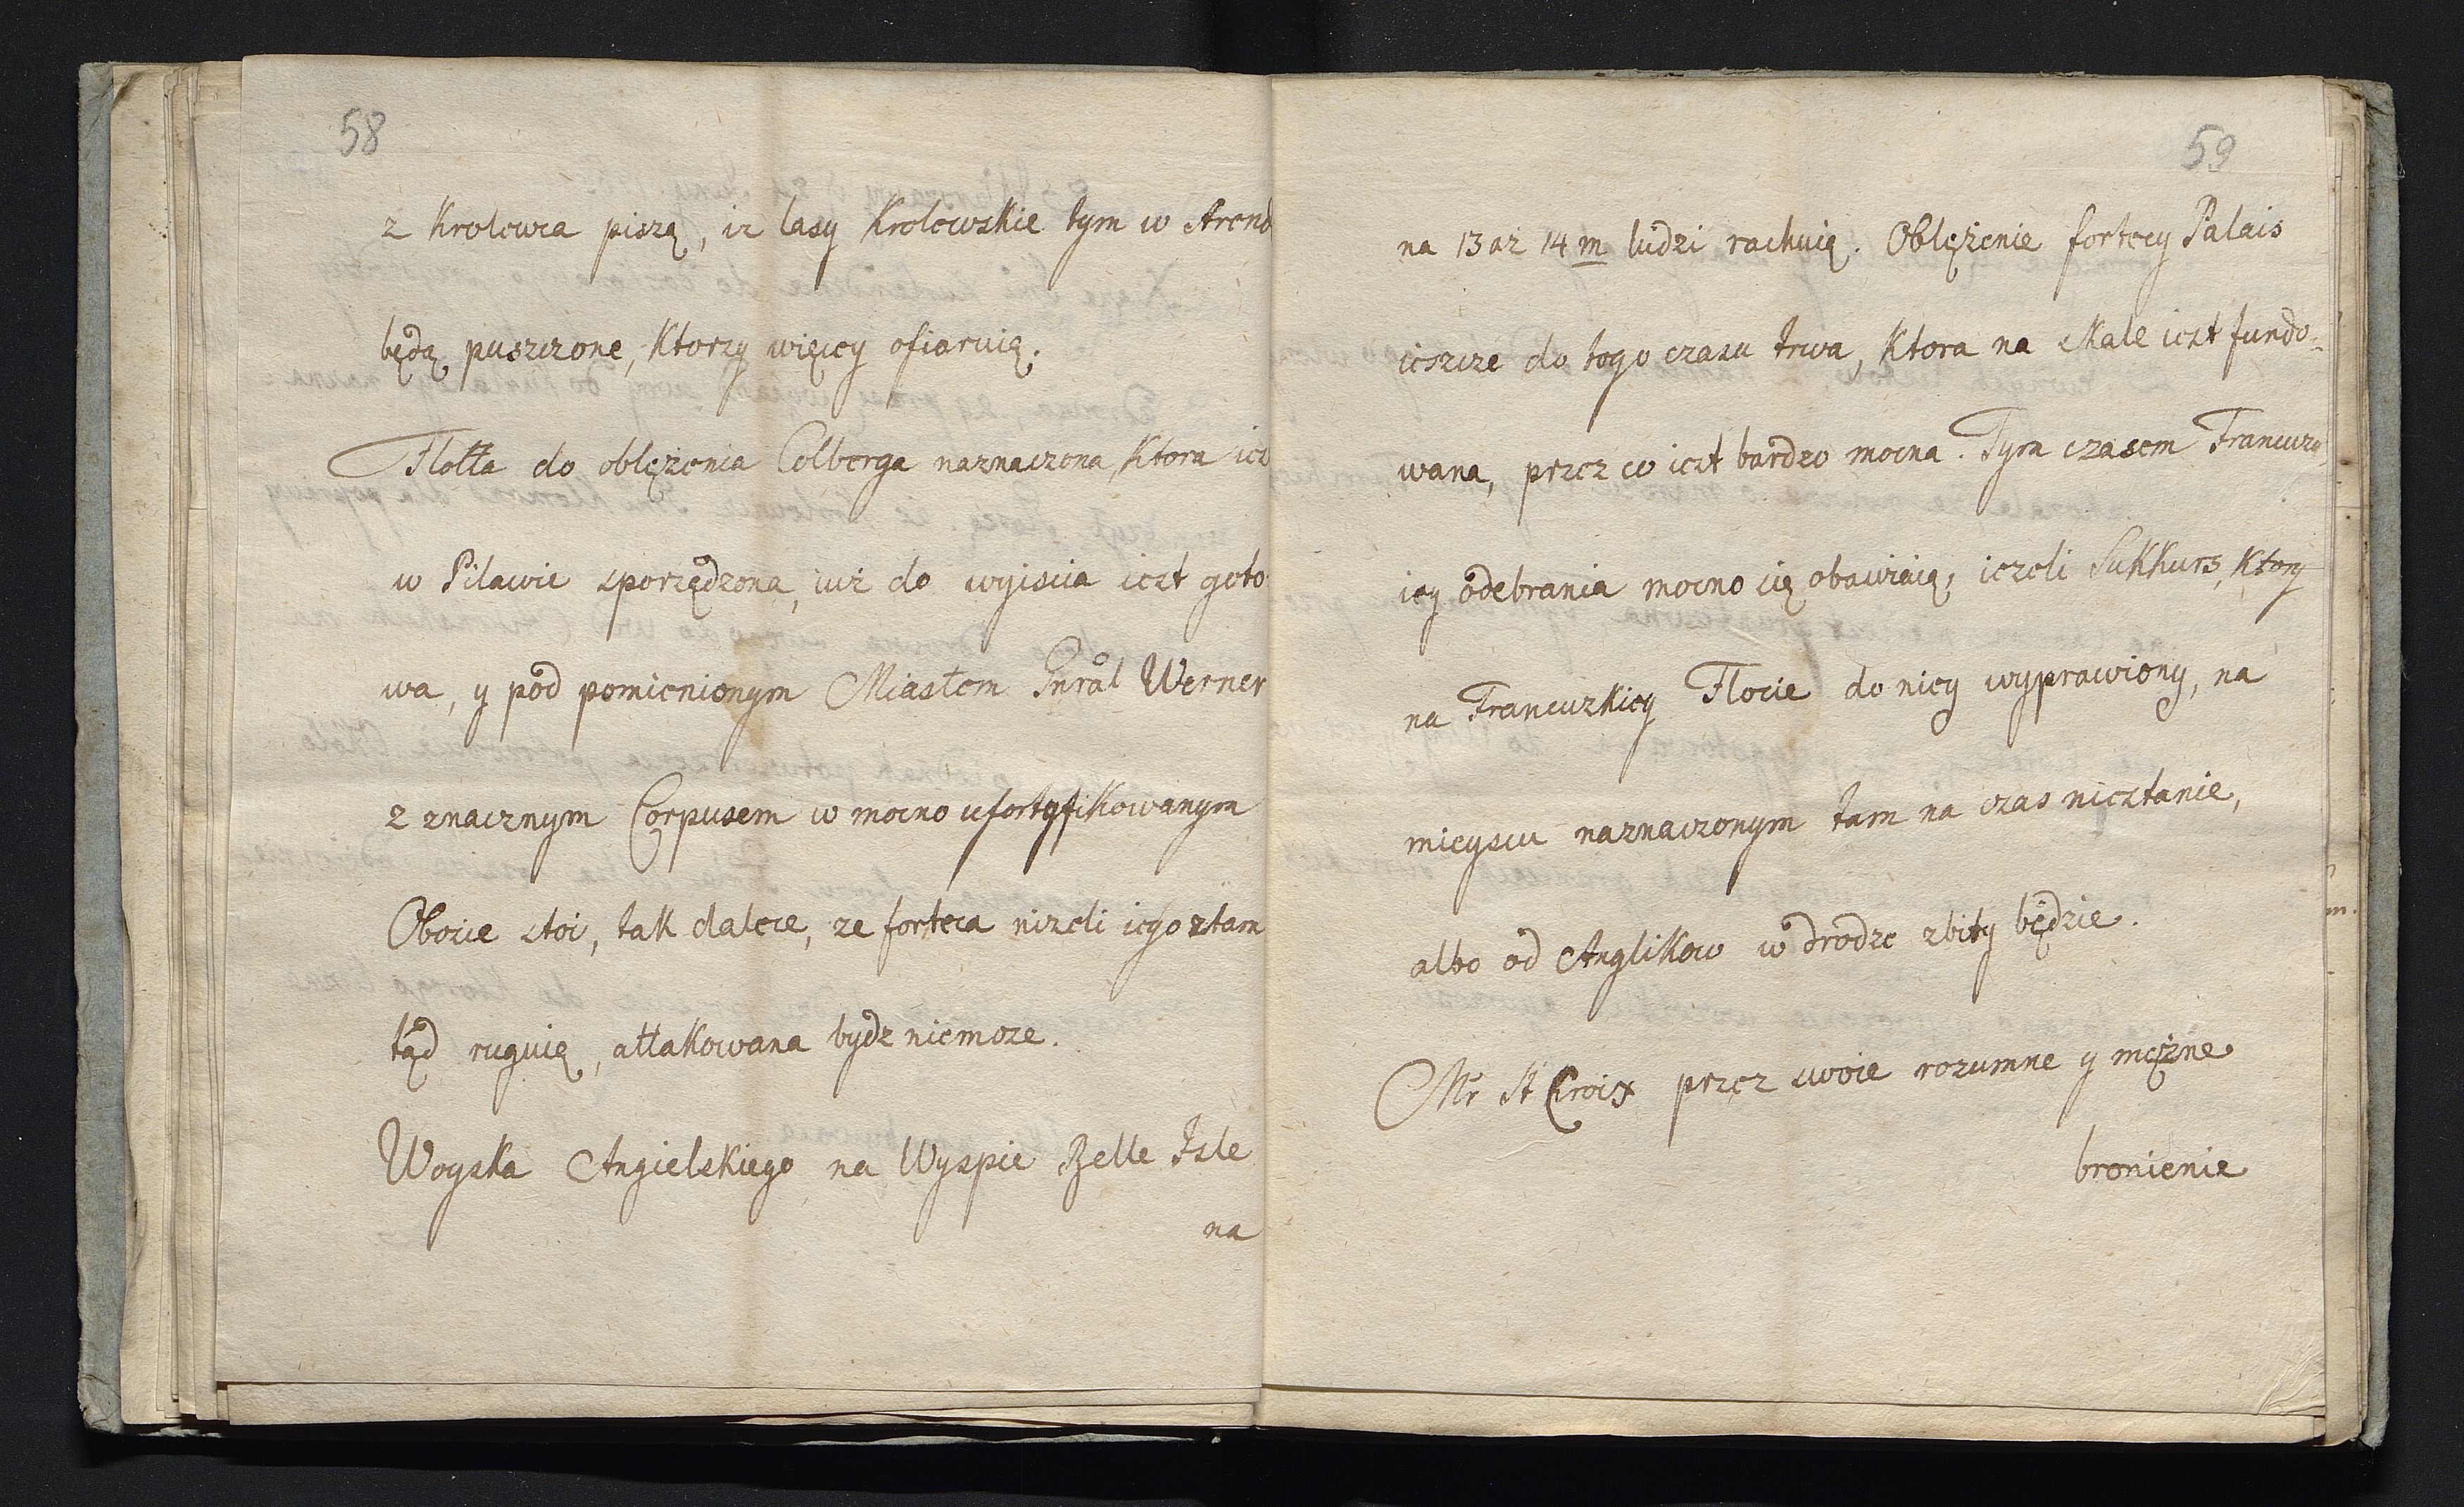 58
z Krolewca piszą, iz lasy Krolewskie tym w Arend
będą puszczone, Ktorzy więcy ofiaruią.
Flotta do oblęzenia Colberga naznaczona, Ktora ies
w Pilawie sporządzona, iuż do wyiscia iest goto
wa, y pod pomienionym Miastem Gnrał Werner
z znacznym Corpusem w mocno ufortyfikowanym
Obozie stoi, tak dalece, ze forteca nizeli iego ztam
tąd ruguią, attakowana bydz niemoze.
Woyska Angielskiego na Wyspie Belle Isle
na
59
na 13 az 14 m ludzi rachuią. Oblężenie fortecy Palais
ieszcze do tego czasu trwa, Ktora na skale iest fundo=
wana, przez co iest bardzo mocna. Tym czasem Francuzi
iey odebrania mocno się obawiaią, iezeli Sukkurs, Ktory
na Francuzkiey Flocie do niey wyprawiony, na
mieyscu naznaczonym tam na czas niestanie,
albo od Anglikow w drodze zbity będzie.
Mr St Croix przez swoie rozumne y mężne
bronienie